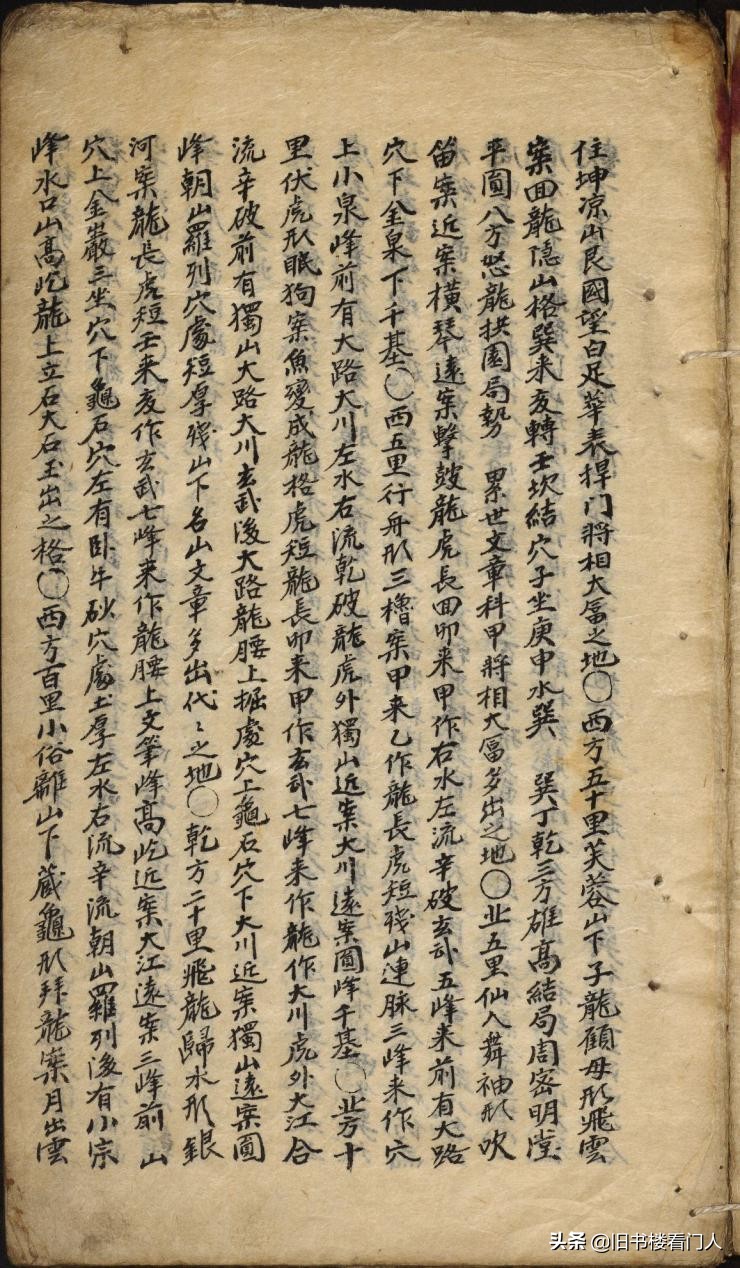 住坤凉山艮國望白足華表捍门將相大富之地〇西方五十里芙蓉山下子龍顧母形飛雲
案回龍隐山格巽来亥轉壬坎結穴子坐庚申水巽 巽丁乾三方雄高結局周密明堂
平圓八方怒龍拱圍局勢 累世文章科甲將相大富多出之地〇北五里仙人舞袖形吹
笛案近案橫琴遠案擊鼓龍虎長回卯来甲作右水左流辛破玄武五峰来前有大路
穴下金泉下千基〇西五里行舟形三櫓案甲来乙作龍長虎短殘山連脉三峰来作穴
上小泉峰前有大路大川左水右流乾破龍虎外獨山近案大川遠案圓峰千基〇北方十
里伏虎形眠狗案魚變成龍格虎短龍長卯来甲作玄武七峰来作龍作大川虎外大江合
流辛破前有獨山大路大川玄武後大路龍腰上掘處穴上龜石穴下大川近案獨山遠案圓
峰朝山羅列穴處短厚殘山下名山文章多出代〻之地〇乾方二十里飛龍歸水形銀
河案龍長虎短壬来亥作玄武七峰来作龍腰上文筆峰高屹近案大江遠案三峰前山
穴上金巖三坐穴下龜石穴左有卧牛砂穴處土厚左水右流辛流朝山羅列後有小宗
峰水口山高屹龍上立石大石玉出之格〇西方百里小俗離山下藏龜形拜龍案月出雲
头条 @旧书楼看门人